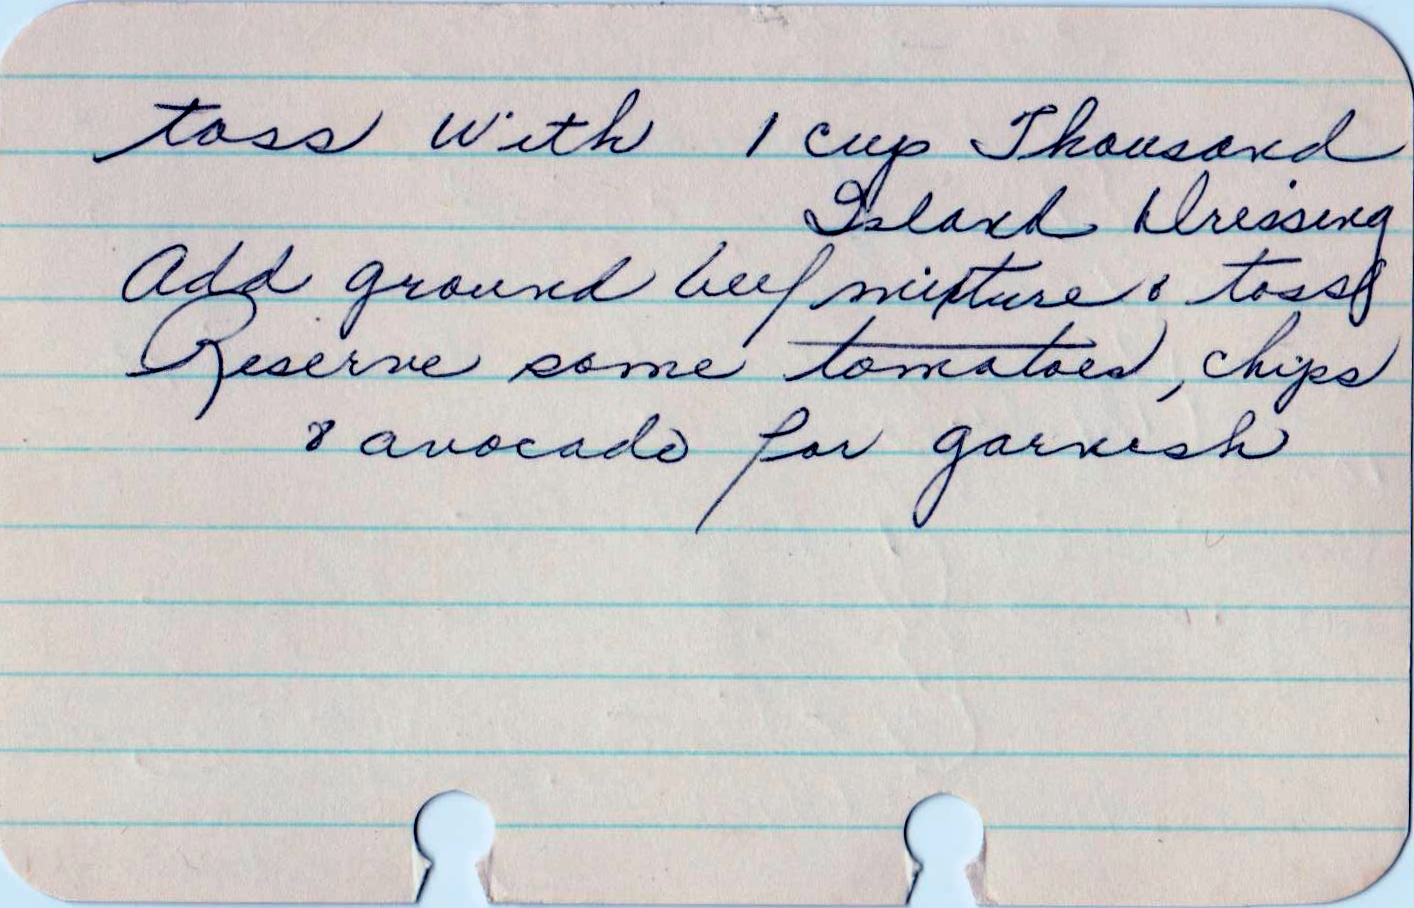 toss with 1 cup Thousand
Island Dressing
Add ground beef mixture & toss
Reserve some tomatoes, chips
& avocado for garnish